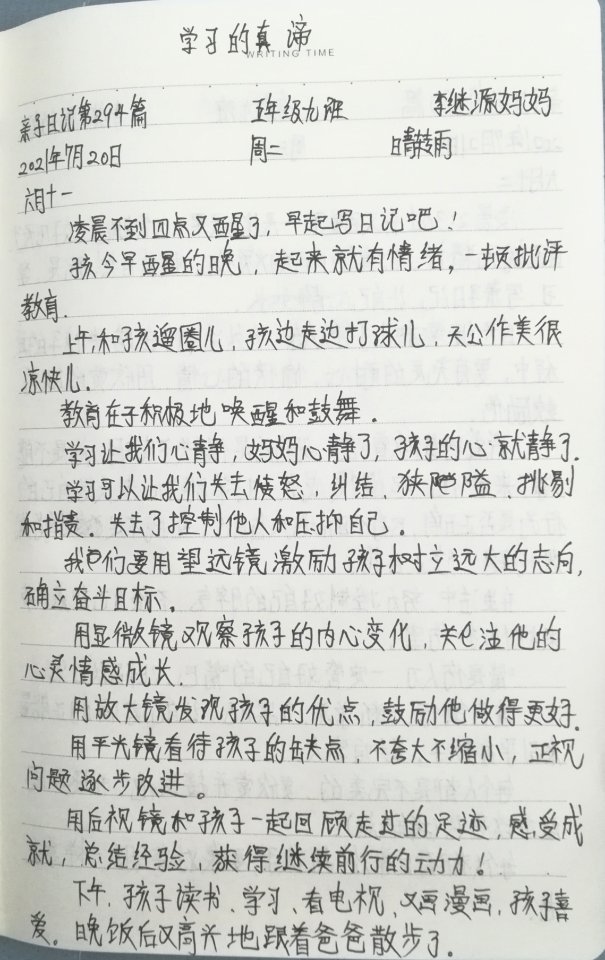 学习的真谛
WRITING TIME
亲子日记第294篇 五年级九班 李继源妈妈
2021年7月20日 周二 晴转雨
六月十一
凌晨不到四点又醒了，早起写日记吧！
孩今早醒的晚，起来就有情绪，一顿批评
教育.
上午和孩遛圈儿，孩边走边打球儿，天公作美很
凉快儿.
教育在于积极地唤醒和鼓舞.
学习让我们心静，妈妈心静了，孩子的心就静了.
学习可以让我们失去愤怒，纠结，狭隘，挑剔
和指责。失去了控制他人和压抑自己.
我们要用望远镜激励孩子树立远大的志向，
确立奋斗目标。
用显微镜观察孩子的内心变化，关注他的
心灵情感成长
用放大镜发现孩子的优点，鼓励他做得更好.
用平光镜看待孩子的缺点，不夸大不缩小，正视
问题逐步改进。
用后视镜和孩子一起回顾走过的足迹，感受成
就，总结经验，获得继续前行的动力！
下午，孩子读书、学习、看电视、又画漫画，孩子喜
爱。晚饭后又高兴地跟着爸爸散步了。